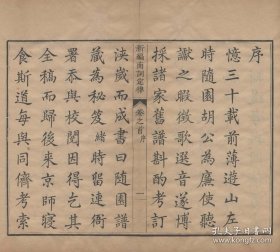 序
憶三十載前薄遊山左
時隨園胡公為廉使聽
讞之暇徵歌選音遂博
採諸家舊譜斟酌考訂
新編南詞定律
卷之首 序
一
浹歲而成書曰隨園譜
藏為秘笈緒時留連衙
署忝與校閱因得乞其
全稿而歸後來京師寢
食斯道每與同儕考索